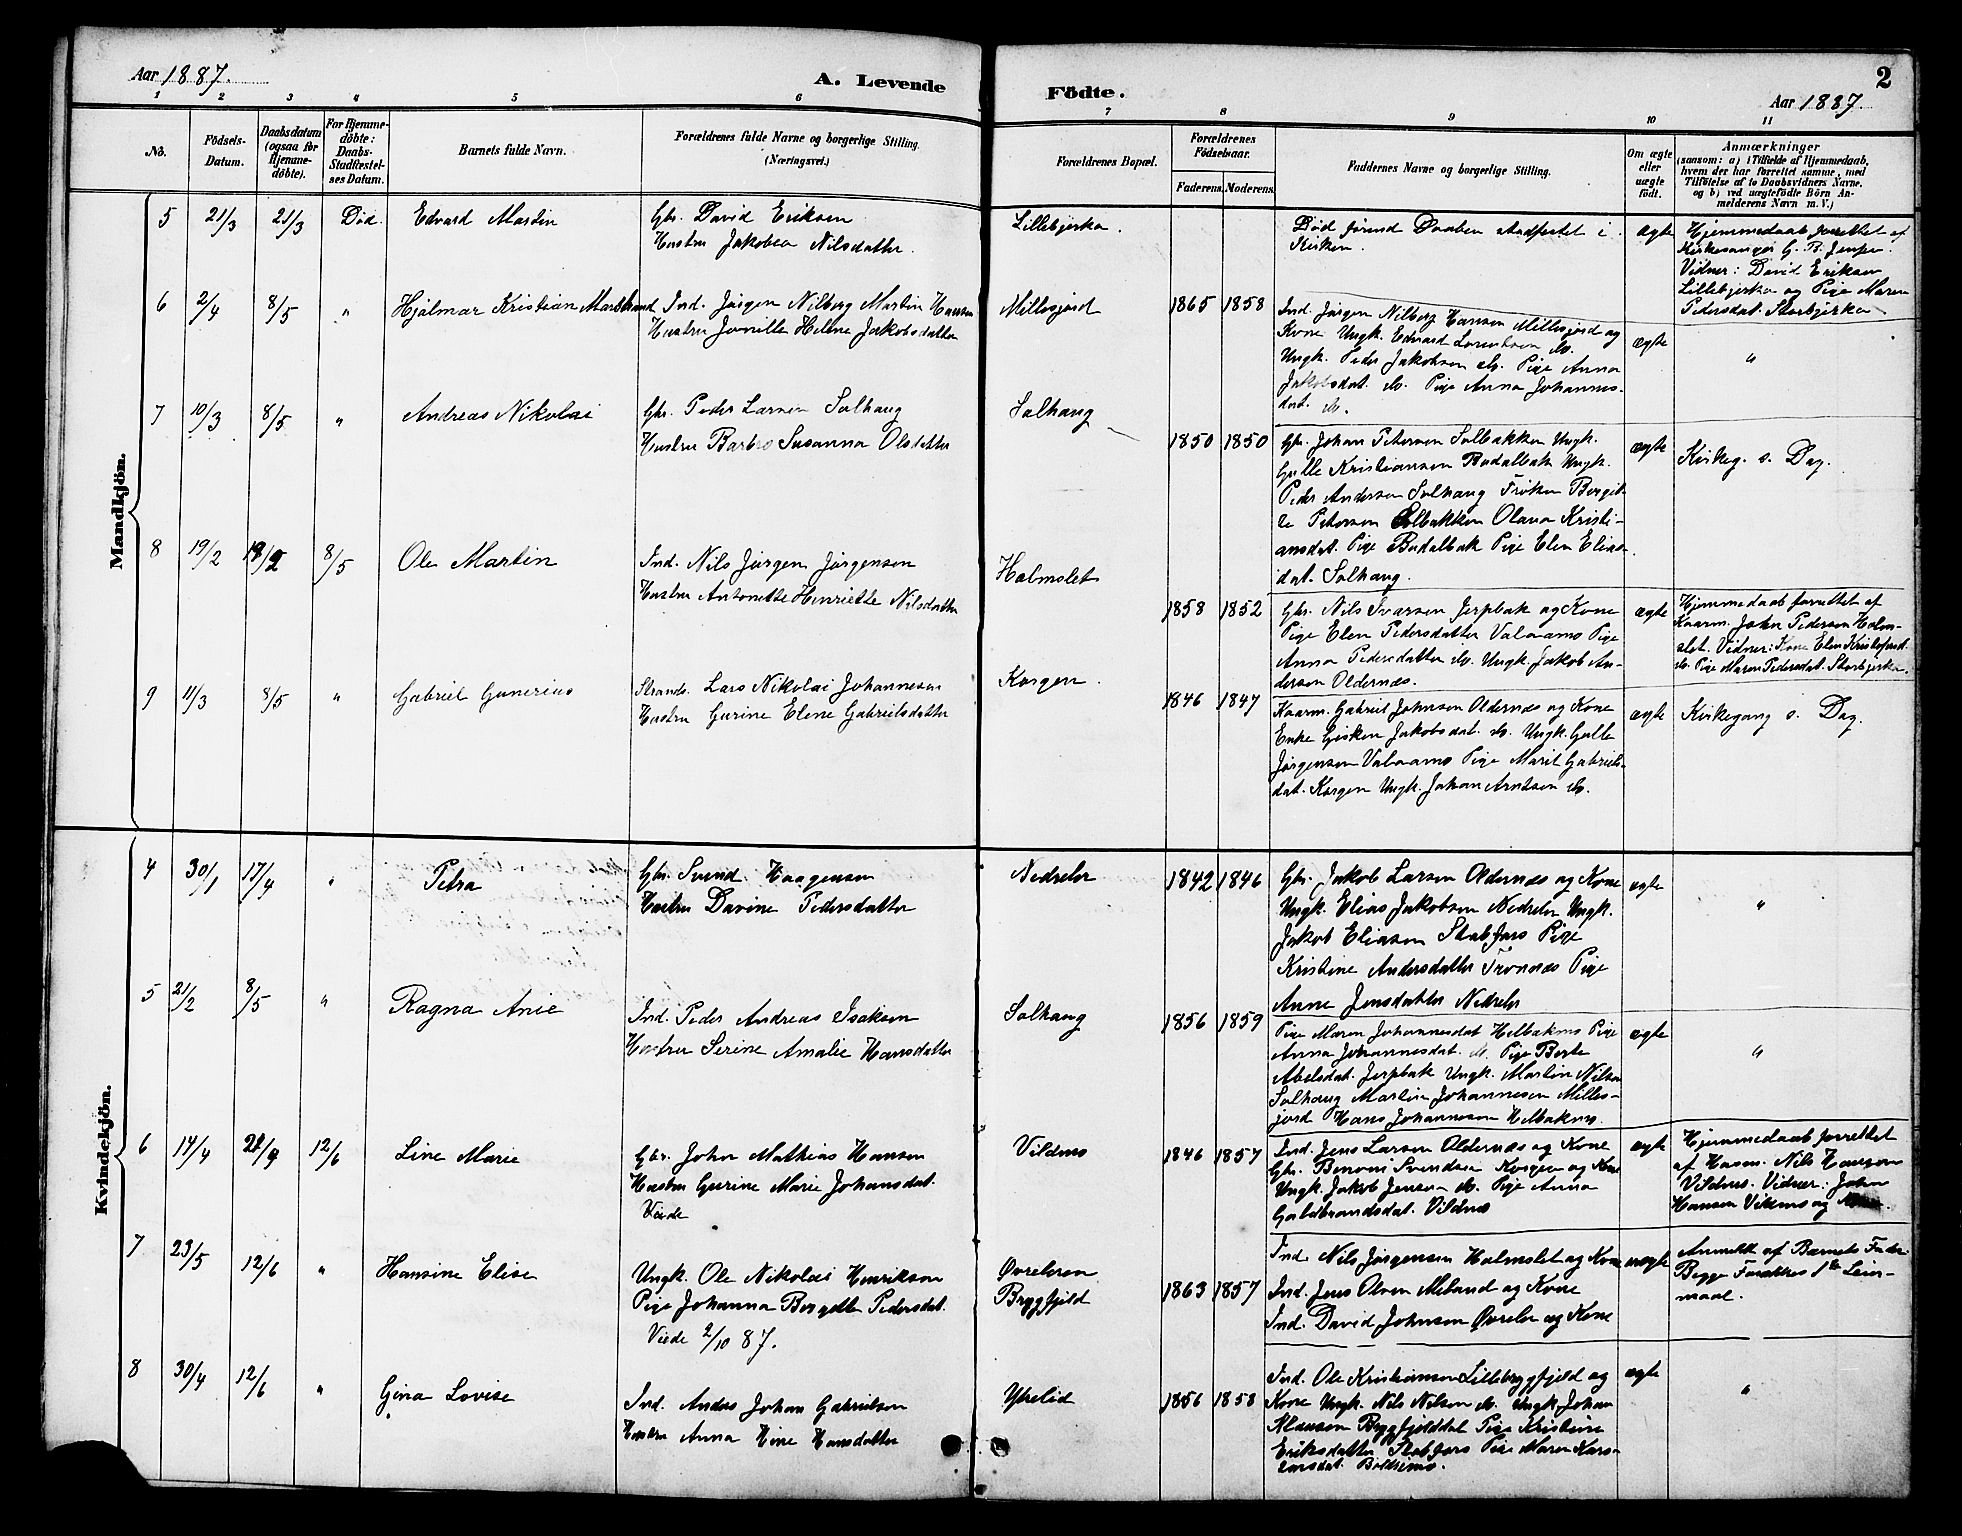 Aar 1887.
A. Levende Födte.
2
Aar 1887.
1 2 3 4 5 6 7 8 9 10 11
No.
Födsels-Datum.
Daabsdatum (ogsaa for Hjemme-döbte).
For Hjemme-döbte: Daabs-Stadfæstel-ses Datum.
Barnets fulde Navn.
Forældrenes fulde Navne og borgerlige Stilling. (Næringsvei.)
Forældrenes Bopæl.
Forældrenes Födselsaar.
Faderens. Moderens.
Faddernes Navne og borgerlige Stilling.
Om ægte eller uægte født.
Anmærkninger
(saasom: a) i Tilfælde af Hjemmedaab,
hvem der har forrettet samme, med
Tilföielse af to Daabsvidners Navne.
og b) ved uægtefödte Börn An-
melderens Navn m. V.)
Mandkjön.
5 21/3 21/3 Död. Edvard Martin
Gbr. David Eriksen
Hustru Jakobea Nilsdatter.
Lillebjerka.
Død førend Daaben stadfestet i
Kirken.
ægte
Hjemmedaab forrettet af
Kirkesanger G. B. Jensen.
Vidner: David Eriksen
Lillebjerka og Pige Maren
Pedersdat. Storbjerka
6 2/4 8/5 " Hjalmar Kristian Marstrand
Ind. Jørgen Nilberg Martin Hansen
Hustru Jonille Helene Jakobsdatter
Millesjord
1865 1858
Ind. Jørgen Nilberg Hansen Millesjord og
Kone Ungk. Edvard Lorentsen do.
Ungk. Peder Jakobsen do. Pige Anna
Jakobsdat. do. Pige Anna Johannes-
dat. do.
ægte
"
7 10/3 8/5 " Andreas Nikolai
Gbr. Peder Larsen Solhaug
Hustru Barbro Susanna Olsdatter
Solhaug
1850 1850
Gbr. Johan Petersen Solbakken Ungk.
Gulle Kristiansen Budalbak Ungk.
Peder Andersen Solhaug Frøken Bergit-
te Petersen Solbakken Olava Kristi-
ansdat. Pige Budalbak Pige Elen Elias-
dat. Solhaug.
ægte
Kirkeg. s. Dag.
8 19/2 8/5 Ole Martin
Ind. Nils Jørgen Jørgensen
Hustru Antonette Henriette Nilsdatter
Holmslet
1858 1852
Gbr. Nils Ivarsen Jerpbak og Kone
Pige Elen Pedersdatter Valaamo Pige
Anna Pedersdatter do. Ungk. Jakob An-
dersen Oldernæs.
ægte
Hjemmedaab forrettet af
Kaarm. John Pedersen Holm-
slet. Vidner: Kone Elen Kristofersd.
do. Pige Maren Pedersdat. Storbjerka.
9 11/3 8/5 " Gabriel Gunerius
Strands. Lars Nikolai Johannesen
Hustru Gurine Elene Gabrielsdatter
Korgen.
1846 1847
Kaarm. Gabriel Johnsen Oldernæs og Kone
Enke Gisken Jakobsdat. do. Ungk. Gulle
Jørgensen Valaamo Pige Marit Gabriels-
dat. Korgen Ungk. Johan Arntsen do.
ægte
Kirkegang s. Dag.
Kvindekjön.
4 30/1 17/4 " Petra
Gbr. Svend Haagensen
Hustru Davine Pedersdatter
Nedreler
1842 1846
Gbr. Jakob Larsen Oldernæs og Kone
Ungk. Elias Jakobsen Nedreler Ungk.
Jakob Eliasen Stabfors Pige
Kristine Andersdatter Tronæs Pige
Anne Jensdatter Nedreler
ægte
"
5 21/2 8/5 " Ragna Anie
Ind. Peder Andreas Isaksen
Hustru Serine Amalie Hansdatter
Solhaug
1856 1859
Pige Maren Johannesdat Helbakmo Pige
Anna Johannesdat. do. Pige Berte
Abelsdat. Jerpbak Ungk. Martin Nilsen
Solhaug Martin Johannesen Milles-
jord Hans Johannesen Helbakmo.
ægte
"
6 14/4 12/6 Line Marie
Gbr. John Mathias Hansen
Hustru Gurine Marie Johansdat.
Viede
Vildmo
1846 1857
Ind. Jens Larsen Oldernæs og Kone
Gbr. Benoni Svendsen Korgen og Kone
Ungk. Jakob Jensen do. Pige Anna
Guldbrandsdat. Vildmo
ægte
Hjemmedaab forrettet
af Husm. Nils Hansen
Vildmo. Vidner: John
Hansen Vildmo og Kone.
7 23/5 12/6 " Hansine Elise
Ungk. Ole Nikolai Henriksen
Pige Johanna Bergitte Pedersdat.
Viede 2/10 87.
Øvreleren
Brygfjeld
1863 1857
Ind. Nils Jørgensen Holmslet og Kone
Ind. Jens Olsen Moland og Kone
Ind. David Johnsen Øvreler og Kone
uægte
Anmeldt af Barnets Fader
Begge Forældres 1ste Leier-
maal.
8 30/4 12/6 " Gina Lovise
Ind. Anders Johan Gabrielsen
Hustru Anna Hansdatter
Ytrelid
1856 1858
Ind. Ole Kristiansen Lillebrygfjeld og
Kone Ungk. Nils Nilsen do. Ungk. Johan
Klausen Brygfjelddal Pige Kristine
Eriksdatter Stabfors Pige Maren
ægte
"